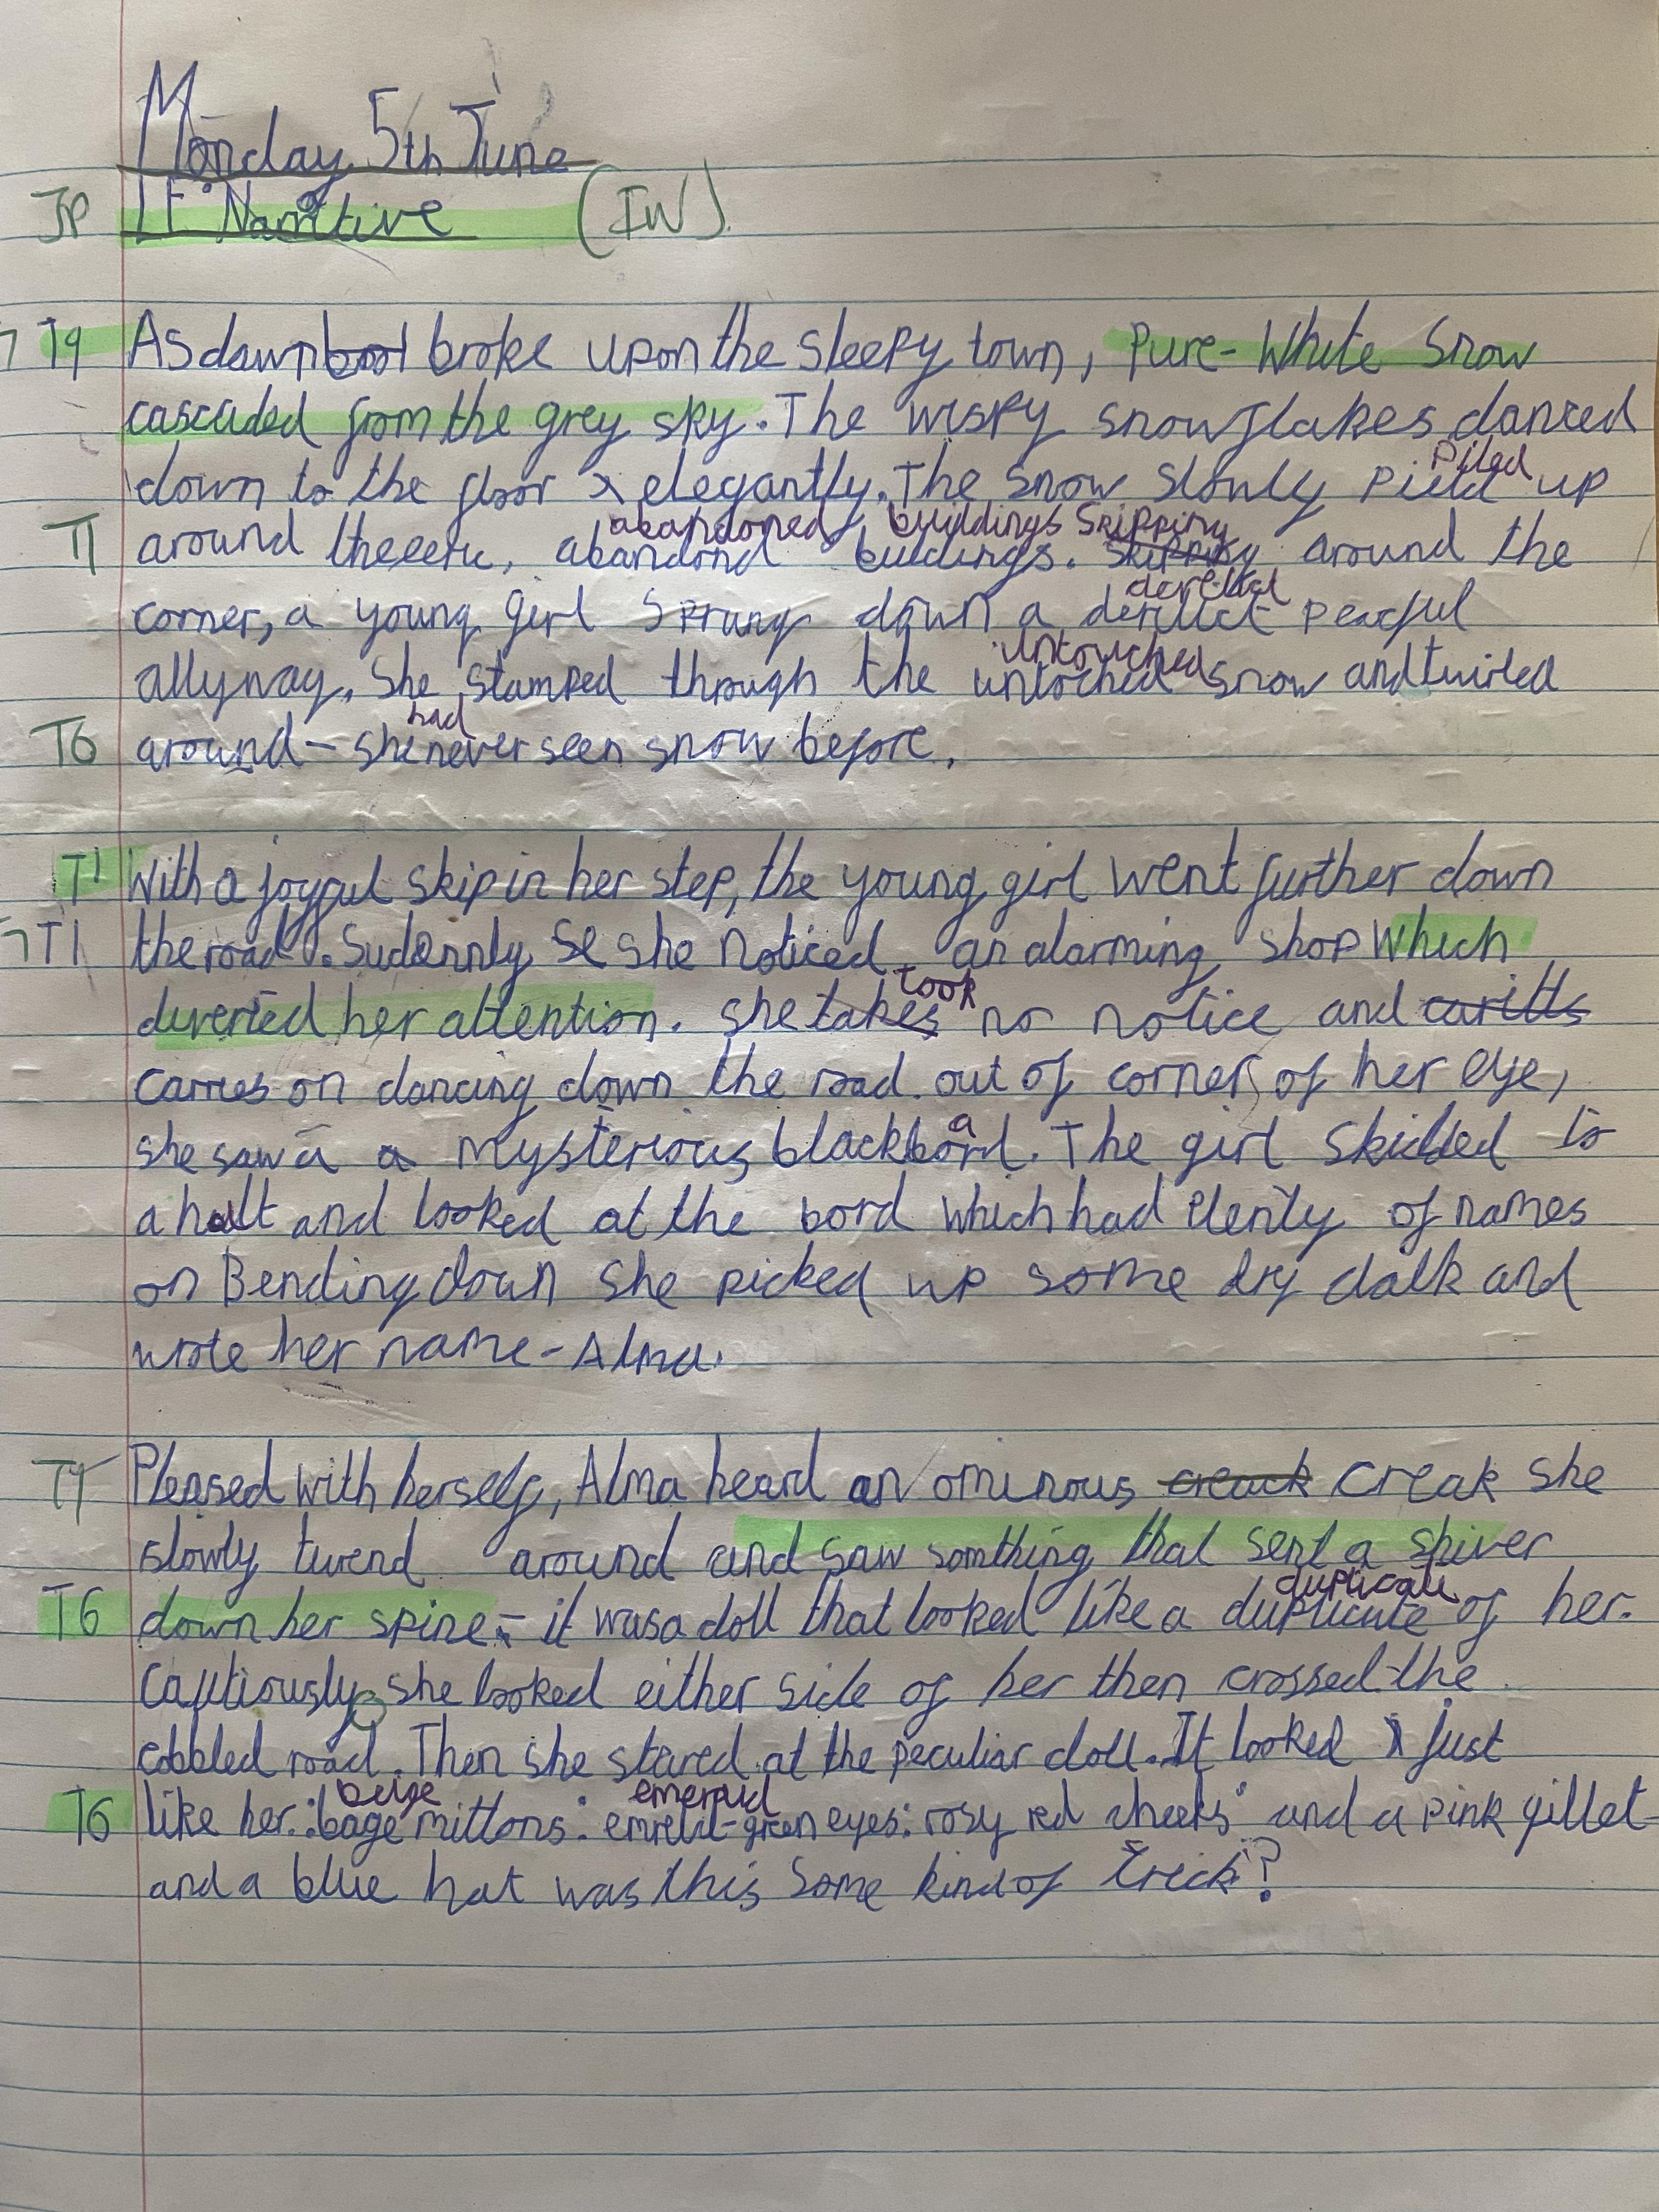 Monday 5th June
JP LF: Narritive (IW).
T9 As dawn broke upon the sleepy town, Pure-White Snow
cascaded from the grey sky. The wispy snowflakes danced
down to the floor elegantly. The snow slowly piled up
piled
T1 around the eeric, abandond buildings. Skipping around the
abandoned buildings Skipping
corner, a young girl sprung down a derilict peacful
derelict
allyway. She stamped through the untoched snow and twirled
untouched
T6 around - she never seen snow before.
had
T1 With a joyful skip in her step, the young girl went further down
T1 the road. Sudennly she noticed an alarming shop which
diverted her attention. she takes no notice and caritts
took
carries on dancing down the road. out of corner of her eye,
she saw a a mysterious blackbord. The girl skidded to
a
a halt and looked at the bord which had plenty of names
on Bending down she picked up some dry chalk and
wrote her name - Alma.
T1 Pleased with herself, Alma heard an ominous creack creak she
slowly turend around and saw somthing that sent a shiver
T6 down her spine - it was a doll that looked like a duplicute of her.
duplicate
Cautiously she looked either side of her then crossed the
cobbled road. Then she stared at the peculiar doll. It looked just
T6 like her: bage mittons: emreld-green eyes: rosy red cheeks and a pink gillet
beige emerald
and a blue hat was this some kind of trick?